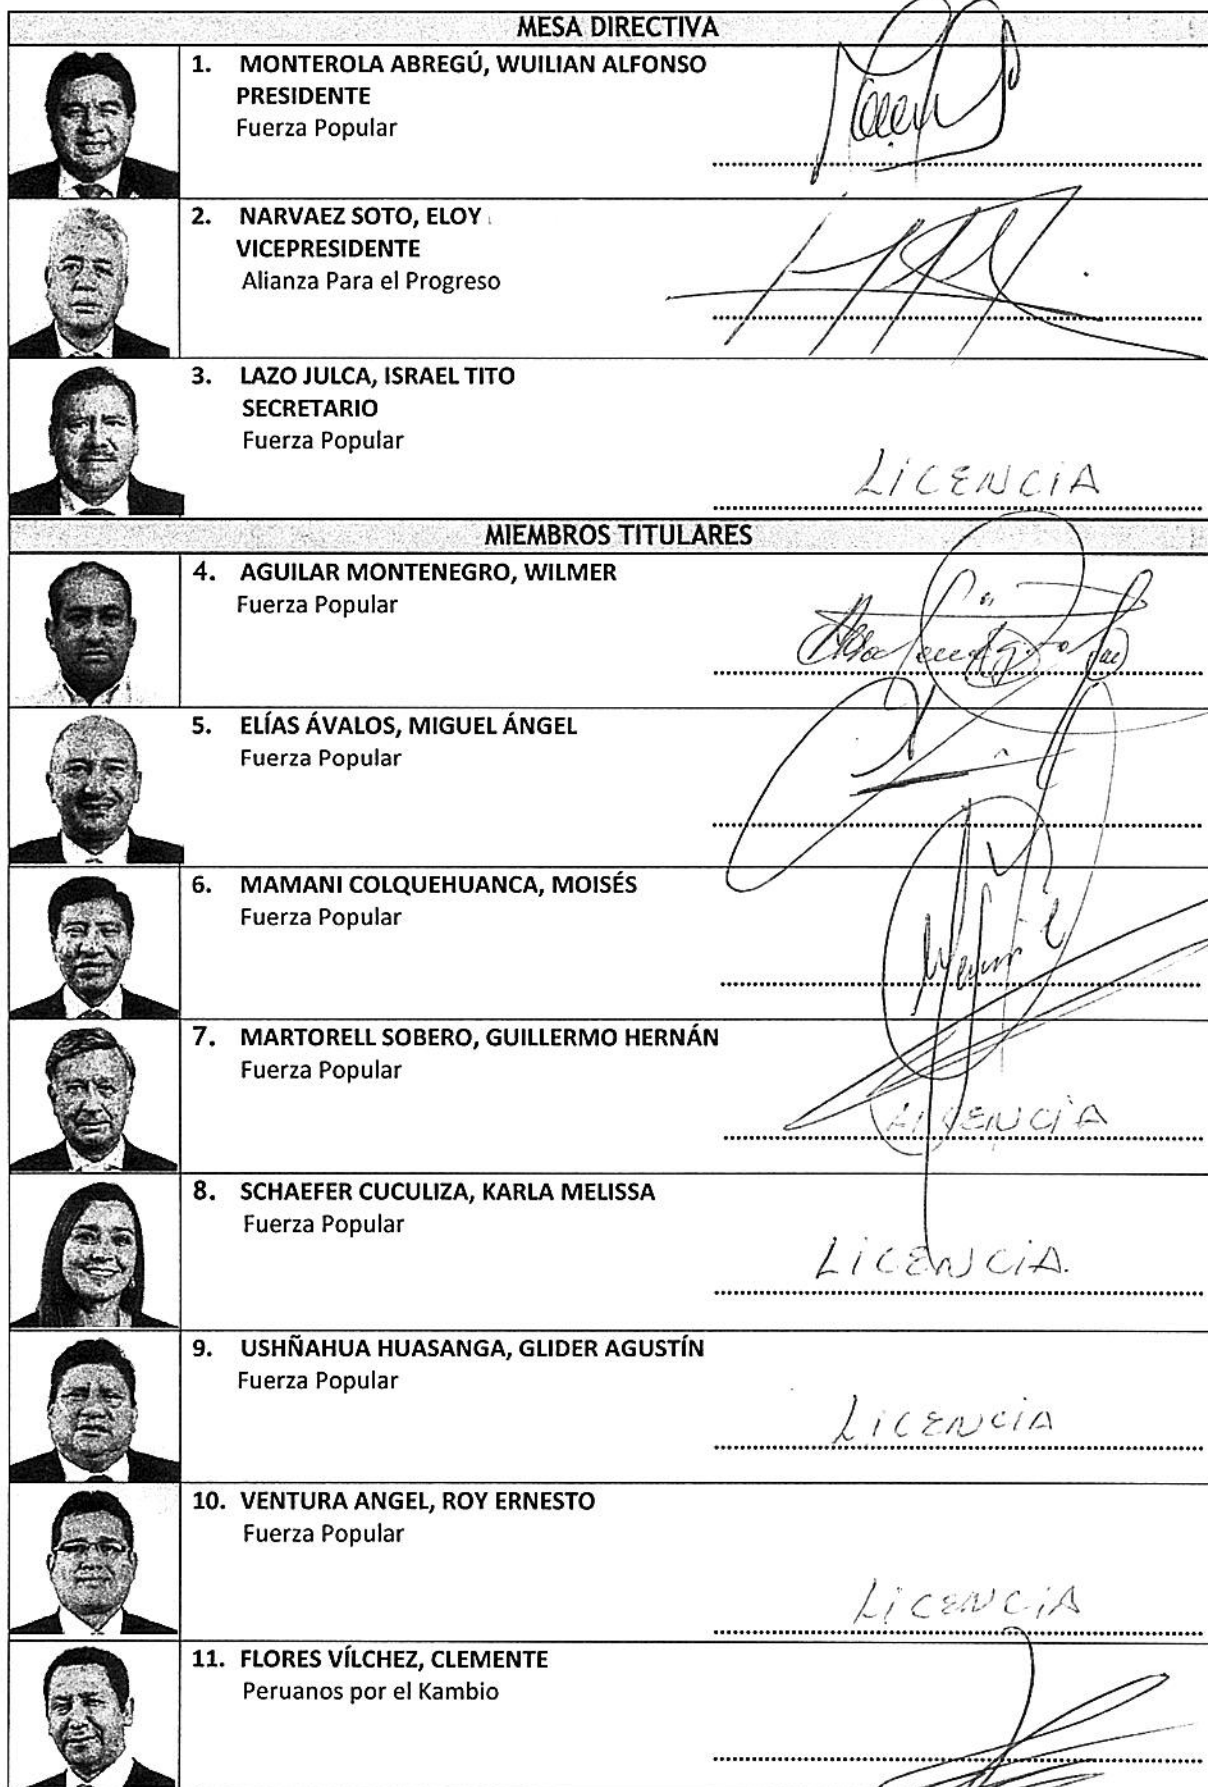 MESA DIRECTIVA
1. MONTEROLA ABREGÚ, WUILIAN ALFONSO
PRESIDENTE
Fuerza Popular
2. NARVAEZ SOTO, ELOY
VICEPRESIDENTE
Alianza Para el Progreso
3. LAZO JULCA, ISRAEL TITO
SECRETARIO
Fuerza Popular
LICENCIA
MIEMBROS TITULARES
4. AGUILAR MONTENEGRO, WILMER
Fuerza Popular
5. ELÍAS ÁVALOS, MIGUEL ÁNGEL
Fuerza Popular
6. MAMANI COLQUEHUANCA, MOISÉS
Fuerza Popular
7. MARTORELL SOBERO, GUILLERMO HERNÁN
Fuerza Popular
LICENCIA
8. SCHAEFER CUCULIZA, KARLA MELISSA
Fuerza Popular
LICENCIA.
9. USHÑAHUA HUASANGA, GLIDER AGUSTÍN
Fuerza Popular
LICENCIA
10. VENTURA ANGEL, ROY ERNESTO
Fuerza Popular
LICENCIA
11. FLORES VÍLCHEZ, CLEMENTE
Peruanos por el Kambio